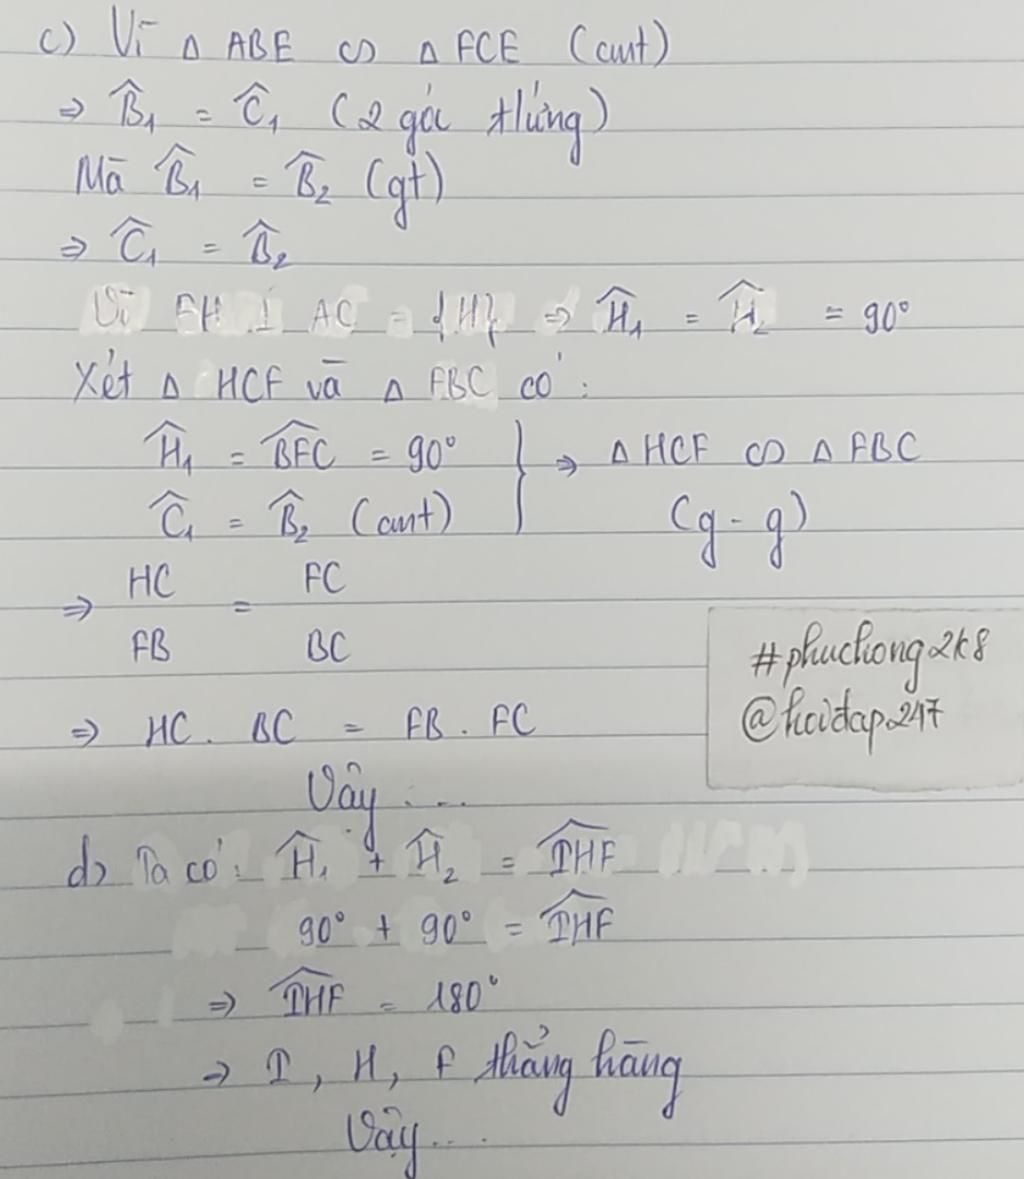 c) Vì Δ ABE ∽ Δ FCE (cmt)
⇒ B̂₁ = Ĉ₁ (2 góc tứng)
Mà B̂₁ = B̂₂ (gt)
⇒ Ĉ₁ = B̂₂
Vì FH ⊥ AC = {H} ⇒ Ĥ₁ = Ĥ₂ = 90°
Xét Δ HCF và Δ FBC có:
Ĥ₁ = BFC^ = 90°
Ĉ₁ = B̂₂ (cmt)
} ⇒ Δ HCF ∽ Δ FBC
(g - g)
⇒ HC/FB = FC/BC
⇒ HC . BC = FB . FC
Vậy ...
#phuchong2k8
@hoidap247
d) Ta có: Ĥ₁ + Ĥ₂ = IHF^
90° + 90° = IHF^
⇒ IHF^ = 180°
⇒ I, H, F thẳng hàng
Vậy...